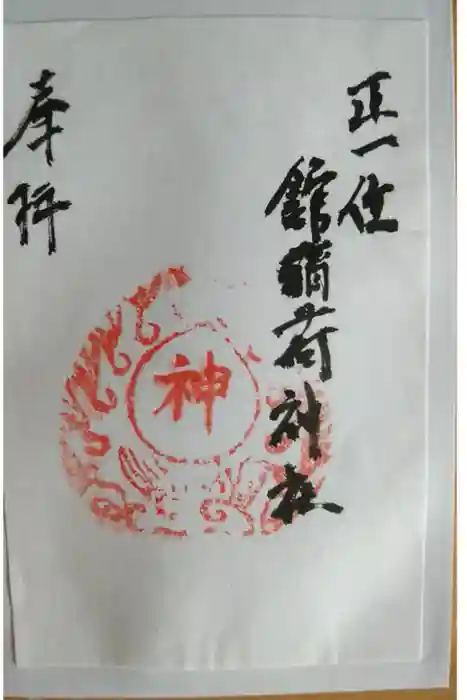 正一位
館稲荷神社
神
奉拝